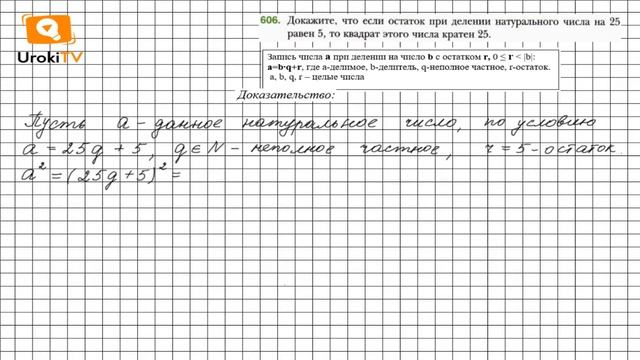 UrokiTV
606. Докажите, что если остаток при делении натурального числа на 25
равен 5, то квадрат этого числа кратен 25.
Запись числа a при делении на число b с остатком r, 0 ≤ r < |b|:
a=b·q+r, где a-делимое, b-делитель, q-неполное частное, r-остаток.
a, b, q, r – целые числа
Доказательство:
Пусть a - данное натуральное число, по условию
a = 25q + 5, q ∈ N - неполное частное, r = 5 - остаток.
a² = (25q + 5)² =